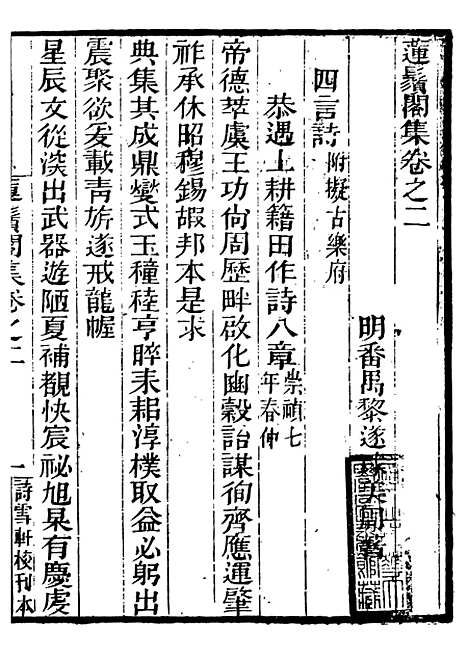 蓮鬚閣集卷之二
明番禺黎遂球美周著
四言詩附擬古樂府
恭遇上耕籍田作詩八章崇禎七年春仲
帝德萃虞王功尙周歷畔啟化豳穀詒謀徇齊應運肇
祚承休昭穆錫嘏邦本是求
典集其成鼎爕式玉穜稑亨睟耒耜淳樸取益必躬出
震聚欲爰載靑旂遂戒龍幄
星辰文從漢出武器遊陋夏補覩快宸祕旭杲有慶虔
蓮鬚閣集卷之二
一
詩雪軒校刊本